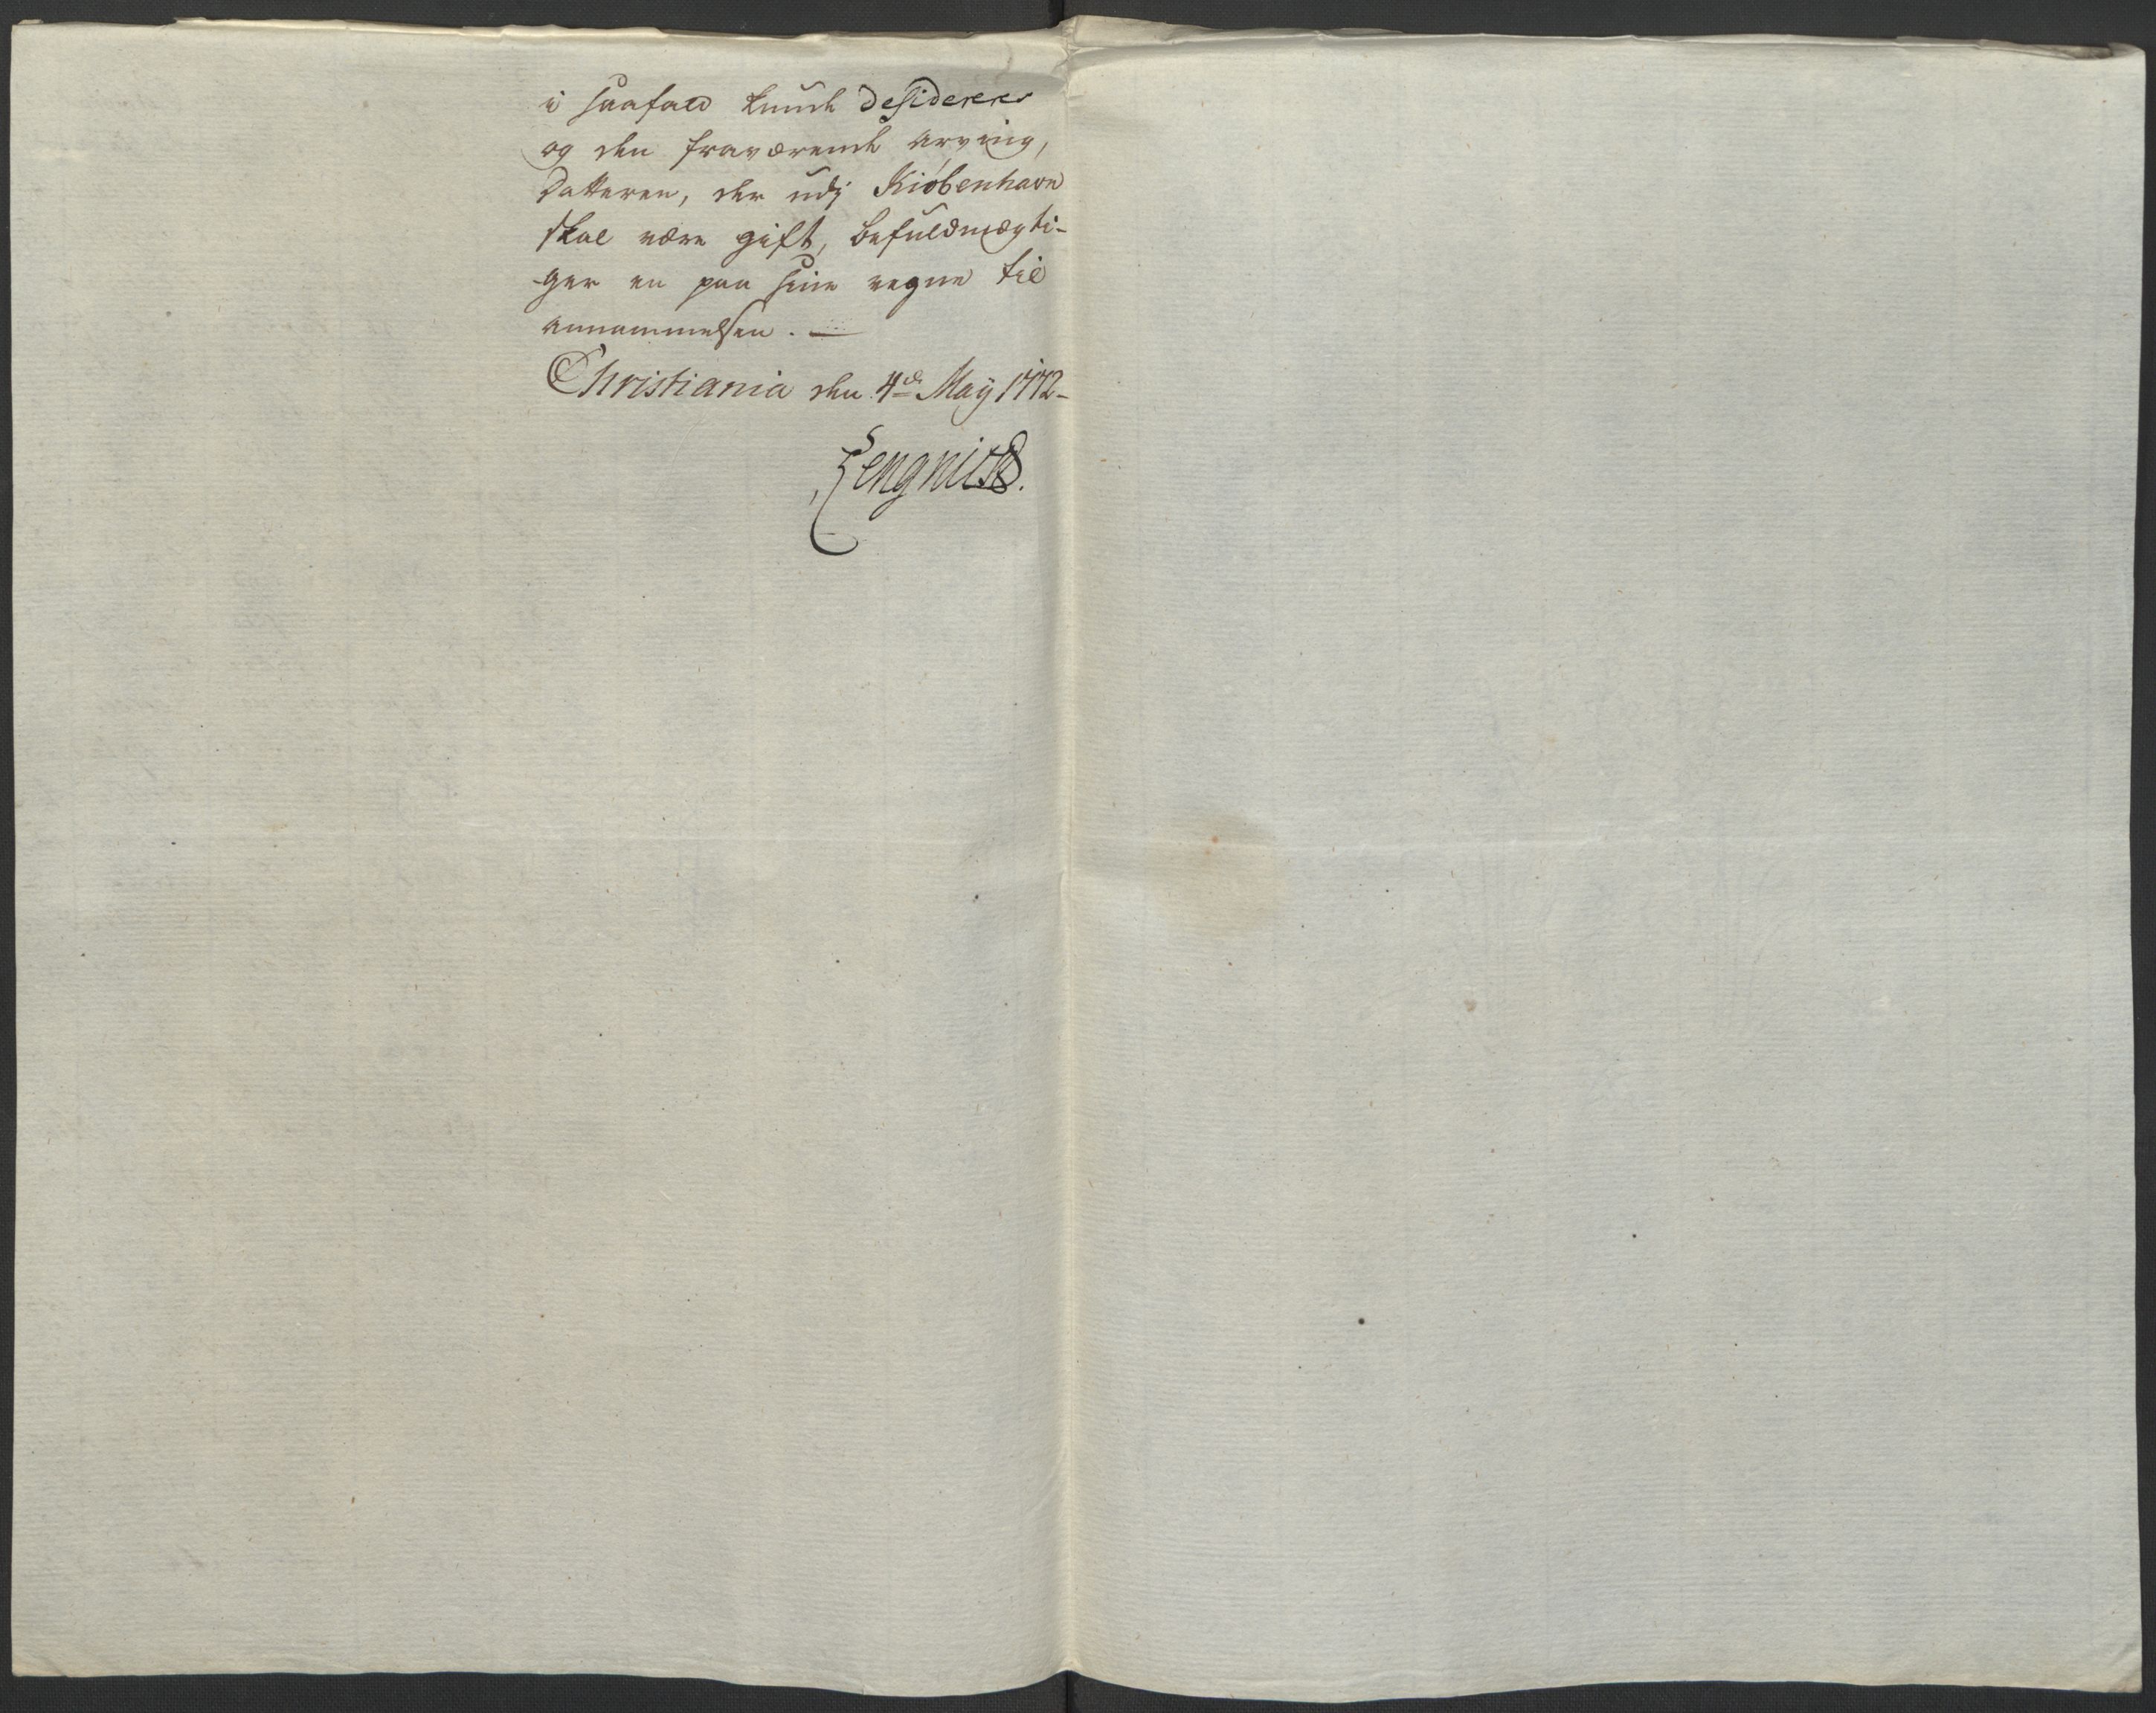 i saafald kunde desideres
og den fraværende arving,
Datteren, der udj Kiöbenhavn
skal være gift, befuldmægti-
-ger en paa sine vegne til
annammelsen. —
Christiania den 4de Maÿ 1772-